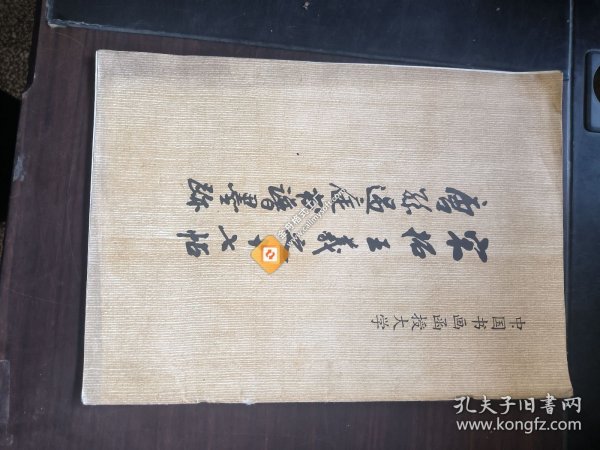 中国书画函授大学
宋拓王羲之十七帖
唐孙过庭书谱墨跡
孔夫子旧书网
www.kongfz.com